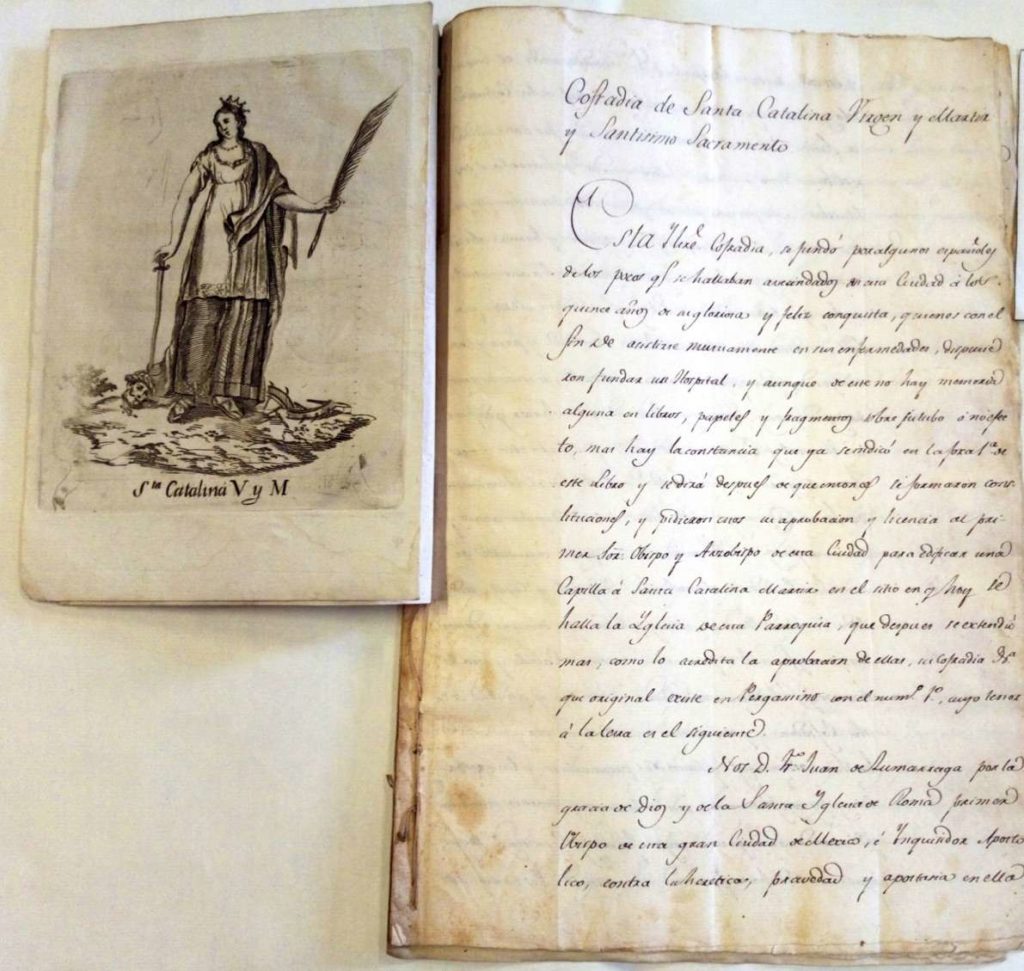 Sta Catalina V y M
Cofradia de Santa Catalina Virgen y Martir
y Santisimo Sacramento
Esta Yltre Cofradia, se fundó por algunos españoles
de los pocos q se hallaban avecindados en esta Ciudad á los
quince años de su gloriosa y feliz conquista, quienes con el
fin de asistirse mutuamente en sus enfermedades, dispusie
ron fundar un Hospital, y aunque de este no hay memoria
alguna en libros, papeles y fragmentos sobre si tubo ó no efec
to, mas hay la constancia que ya se indicó en la foxa 1a de
este Libro y se dirá despues de que entonces se formaron cons
tituciones, y pidieron su aprobacion y licencia al pri
mer Sor Obispo y Arzobispo de esta Ciudad para edificar una
Capilla á Santa Catalina Martir en el sitio en q hoy se
halla la Yglesia de esta Parroquia, que despues se extendió
mas, como lo acredita la aprobacion de ellas, su Cofradia
que original existe en Pergamino con el numo 1o, cuyo tenor
á la letra es el siguiente.
Nos D. Fr Juan de Zumarraga por la
gracia de Dios y de la Santa Yglesia de Roma primer
Obispo de esta gran Ciudad de Mexico, é Ynquisidor Aposto
lico, contra la heretica, pravedad y apostasia en ella